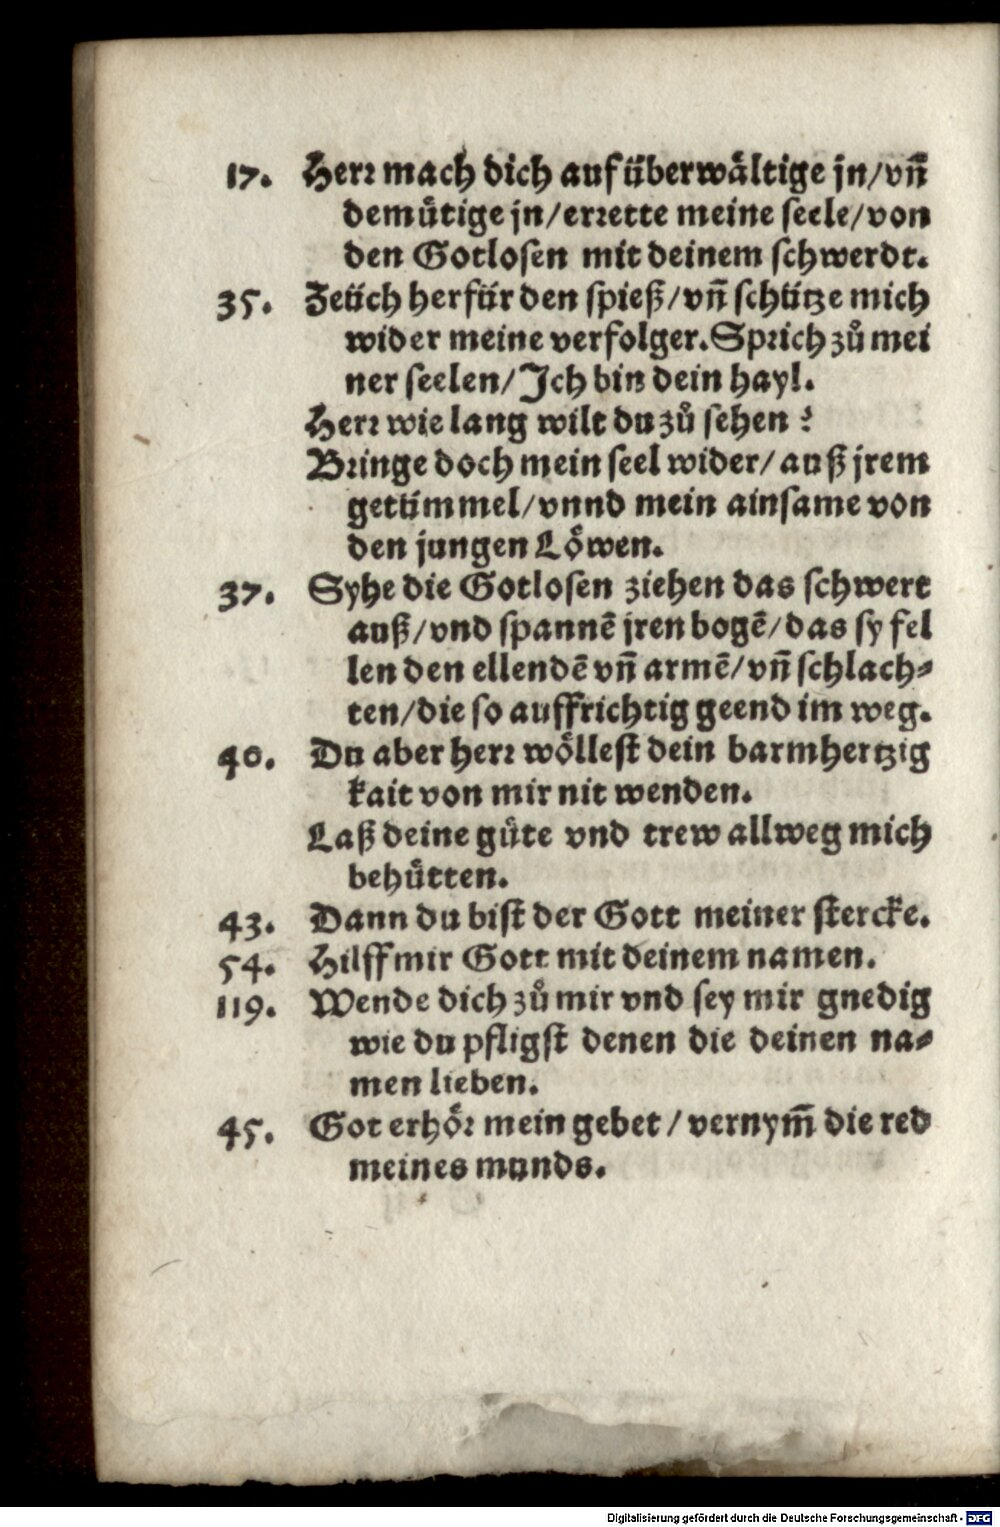 17. Herr mach dich auf überwältige jn/vnñ
demuͤtige jn/errette meine seele/von
den Gotlosen mit deinem schwerdt.
35. Zeüch herfür den spieß/vñ schütze mich
wider meine verfolger. Sprich zů mei
ner seelen/Ich bin dein hayl.
Herr wie lang wilt du zů sehen?
Bringe doch mein seel wider/auß jrem
getümmel/vnnd mein ainsame von
den jungen Loͤwen.
37. Syhe die Gotlosen ziehen das schwert
auß/vnd spannẽ jren bogẽ/das sy fel
len den ellendẽ vñ armẽ/vñ schlach⸗
ten/die so auffrichtig geend im weg.
40. Du aber herr woͤllest dein barmhertzig
kait von mir nit wenden.
Laß deine guͤte vnd trew allweg mich
behuͤtten.
43. Dann du bist der Gott meiner stercke.
54. Hilff mir Gott mit deinem namen.
119. Wende dich zů mir vnd sey mir gnedig
wie du pfligst denen die deinen na⸗
men lieben.
45. Got erhoͤr mein gebet/vernym̃ die red
meines munds.
Digitalisierung gefördert durch die Deutsche Forschungsgemeinschaft - DFG